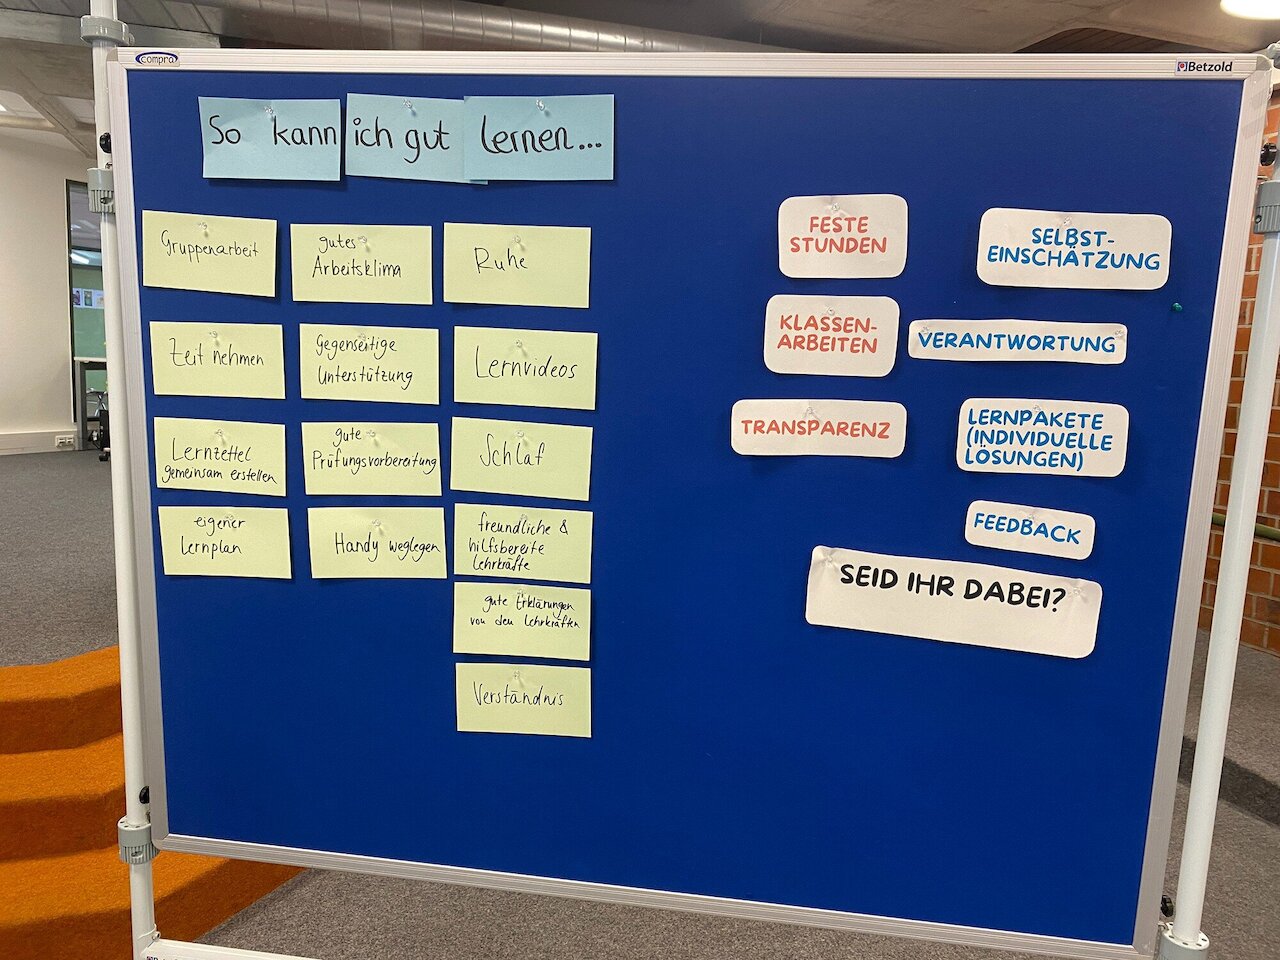 compra
Betzold
So kann ich gut lernen...
Gruppenarbeit
Zeit nehmen
Lernzettel
gemeinsam erstellen
eigener
Lernplan
gutes
Arbeitsklima
Gegenseitige
Unterstützung
gute
Prüfungsvorbereitung
Handy weglegen
Ruhe
Lernvideos
Schlaf
freundliche &
hilfsbereite
Lehrkräfte
gute Erklärungen
von den Lehrkräften
Verständnis
FESTE
STUNDEN
KLASSEN-
ARBEITEN
TRANSPARENZ
SELBST-
EINSCHÄTZUNG
VERANTWORTUNG
LERNPAKETE
(INDIVIDUELLE
LÖSUNGEN)
FEEDBACK
SEID IHR DABEI?